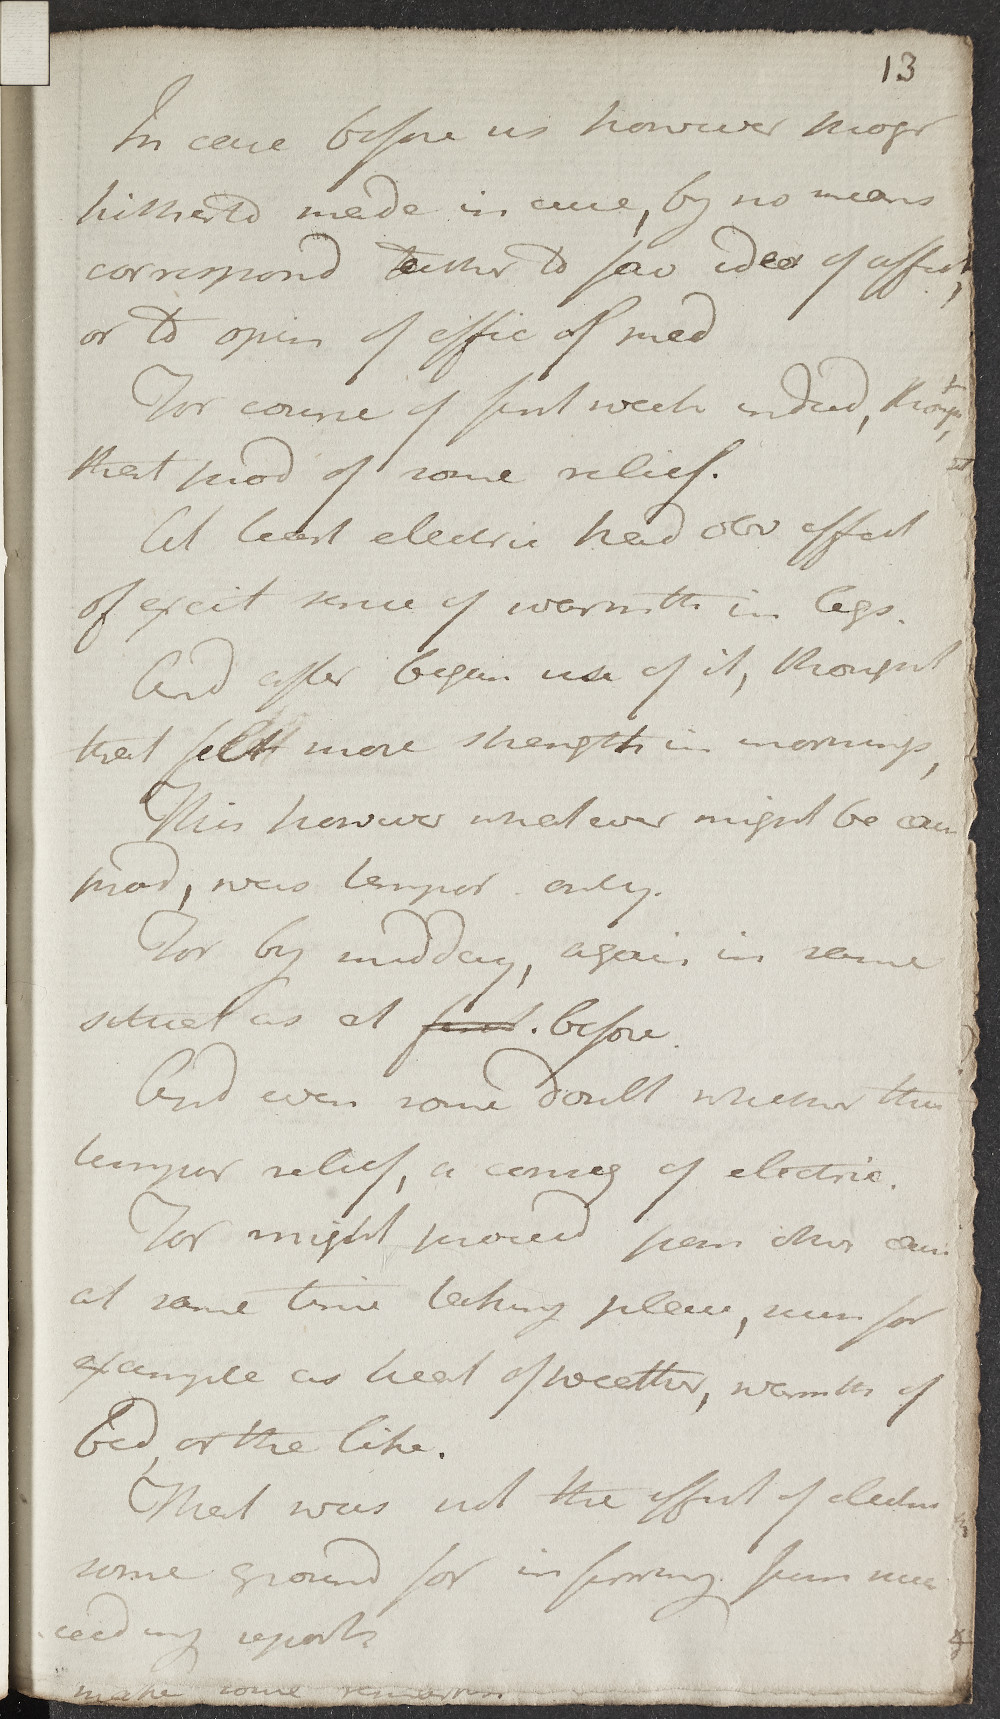 13
In case before us however progr
hitherto made in cure, by no means
correspond either to fav idea of affect,
or to opin of effic of med
For course of first week indeed, thought
that prod of some relief.
At least electric had obv effect
of excit sense of warmth in legs.
And after began use of it, thought
that felt more strength in mornings,
This however whatever might be cau
prod, was tempor only.
For by midday, again in same
situat as at first. before.
And even some doubt whether this
tempor relief, a conseq of electric.
For might proceed from other caus
at same time taking place, such for
example as heat of weather, warmth of
bed, or the like.
That was not the effect of electric
some ground for inferring from suc
ceeding reports
make some remarks